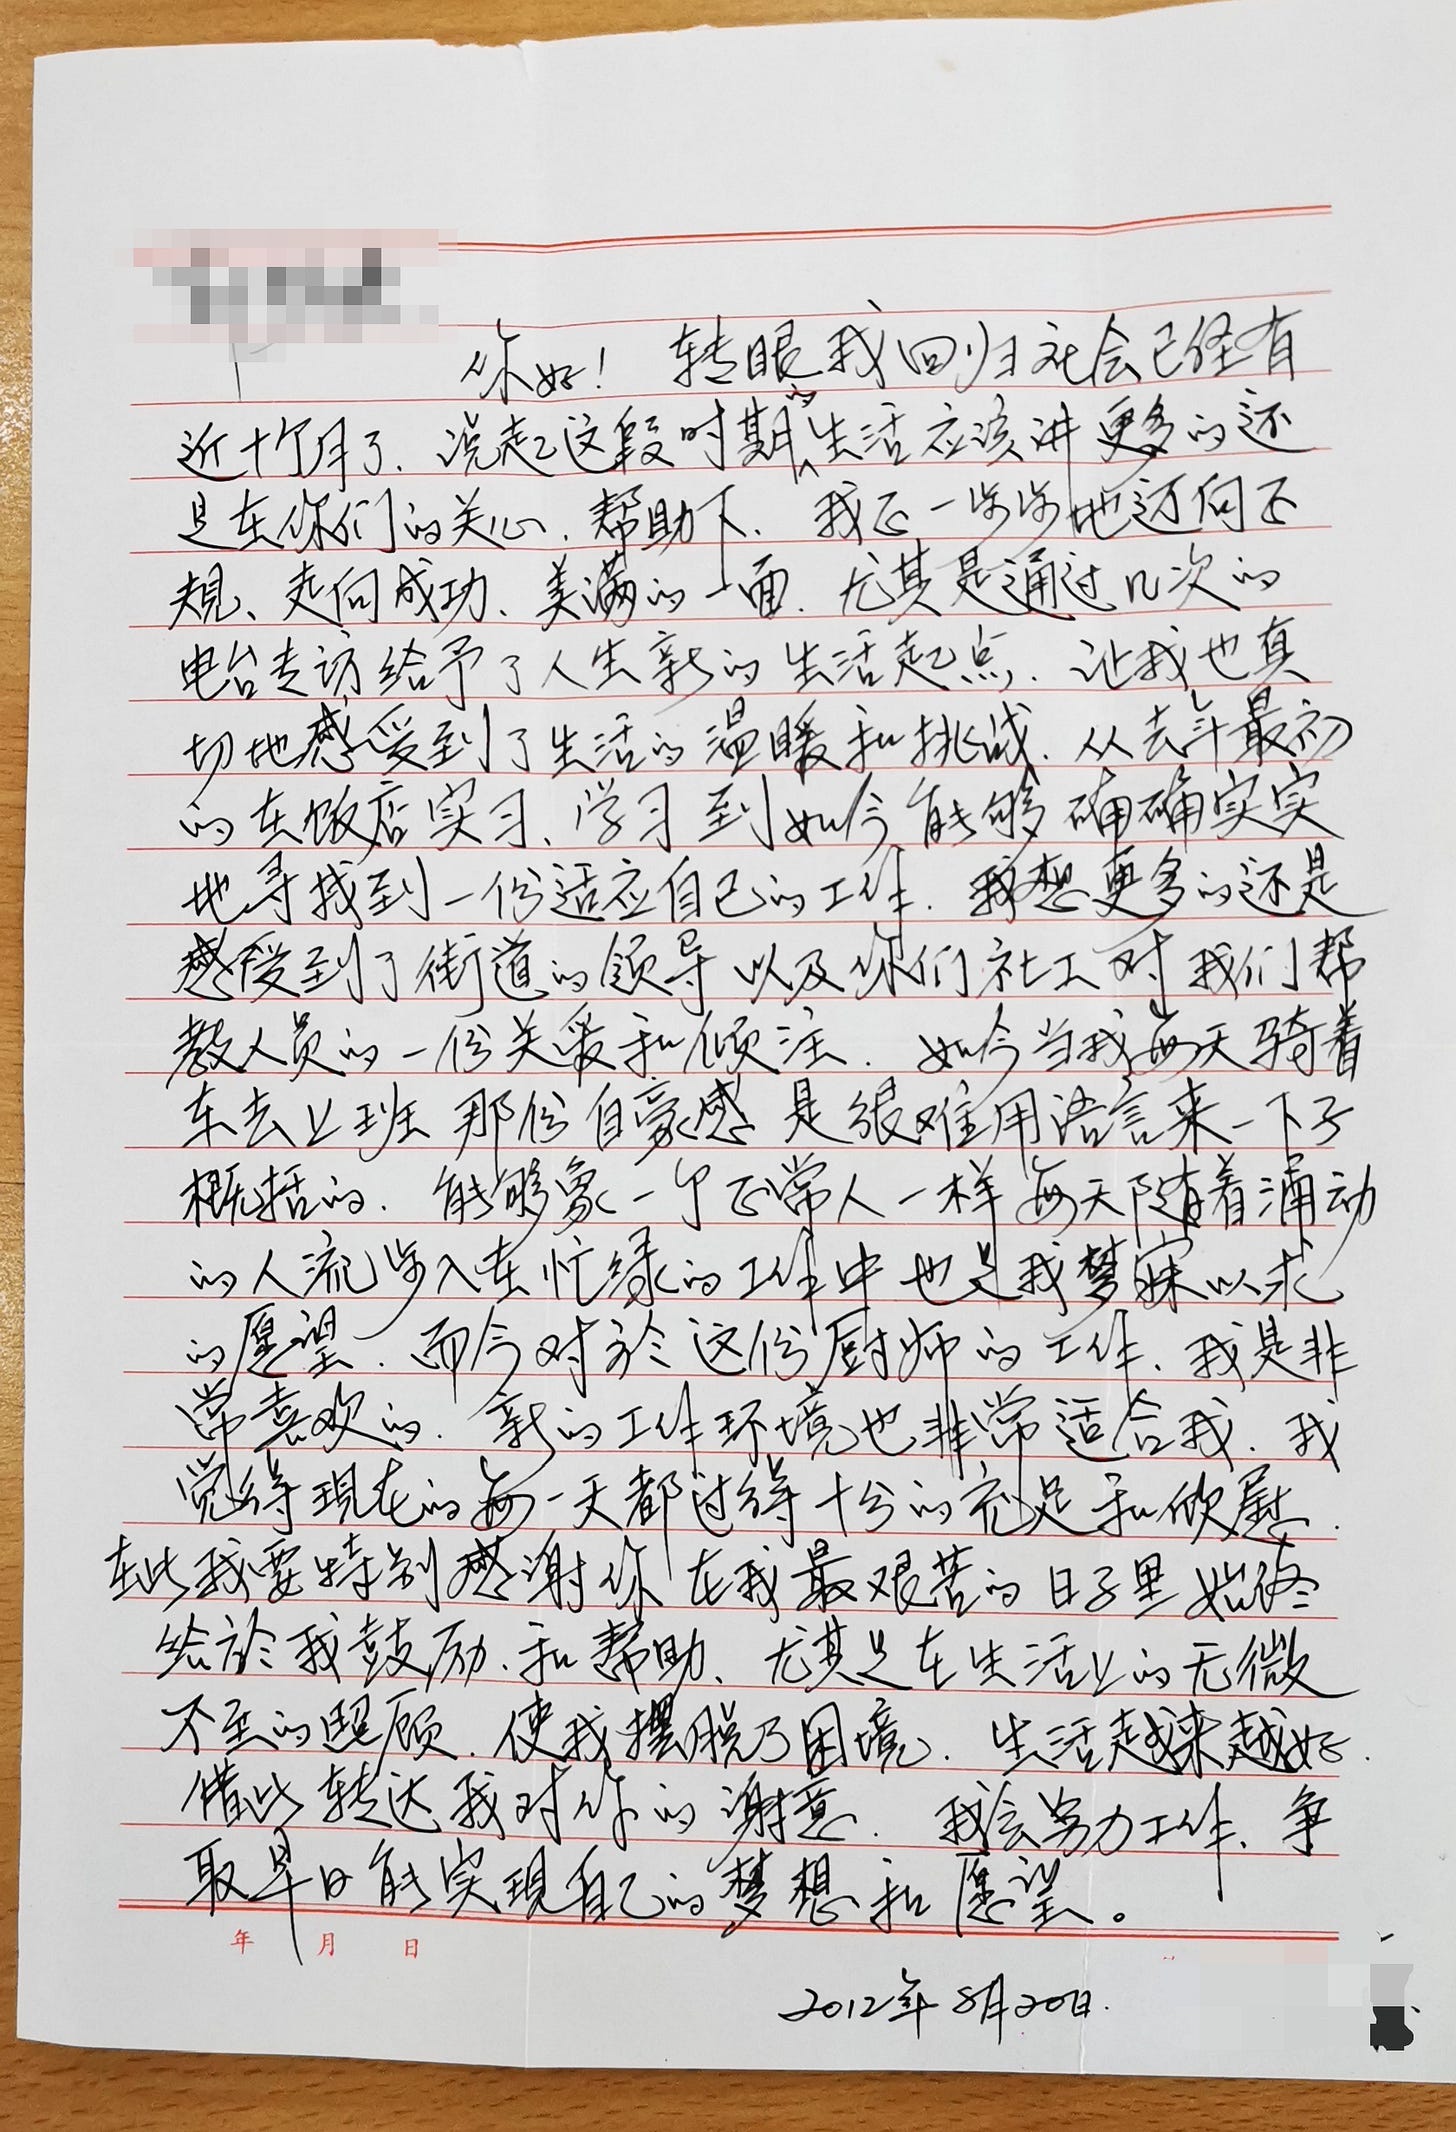 你好！ 转眼我回归社会已经有
近十个月了．说起这段时期的生活应该讲更多的还
是在你们的关心．帮助下．我正一步步地迈向正
规、走向成功、美满的一面．尤其是通过几次的
电台专访给予了人生新的生活起点．让我也真
切地感受到了生活的温暖和挑战．从去年最初
的在饭店实习、学习到如今能够确确实实
地寻找到一份适应自己的工作．我想更多的还是
感受到了街道的领导以及你们社工对我们帮
教人员的一份关爱和倾注．如今当我每天骑着
车去上班那份自豪感是很难用语言来一下子
概括的．能够象一个正常人一样每天随着涌动
的人流步入在忙绿的工作中也是我梦寐以求
的愿望．而今对於这份厨师的工作．我是非
常喜欢的．新的工作环境也非常适合我．我
觉得现在的每一天都过得十分的充足和欣慰．
在此我要特别感谢你在我最艰苦的日子里始终
给於我鼓励．和帮助．尤其是在生活上的无微
不至的照顾．使我摆脱了困境．生活越来越好．
借此转达我对你的谢意．我会努力工作．争
取早日能实现自己的梦想和愿望。
年 月 日
2012年8月20日．